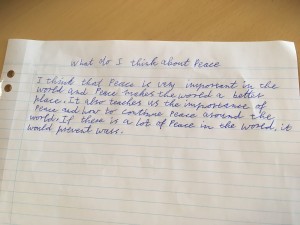 What do I think about Peace
I think that Peace is very important in the
world and Peace makes the world a better
place. It also teaches us the importance of
Peace and how to continue Peace around the
world. If there is a lot of Peace in the world, it
would prevent wars.